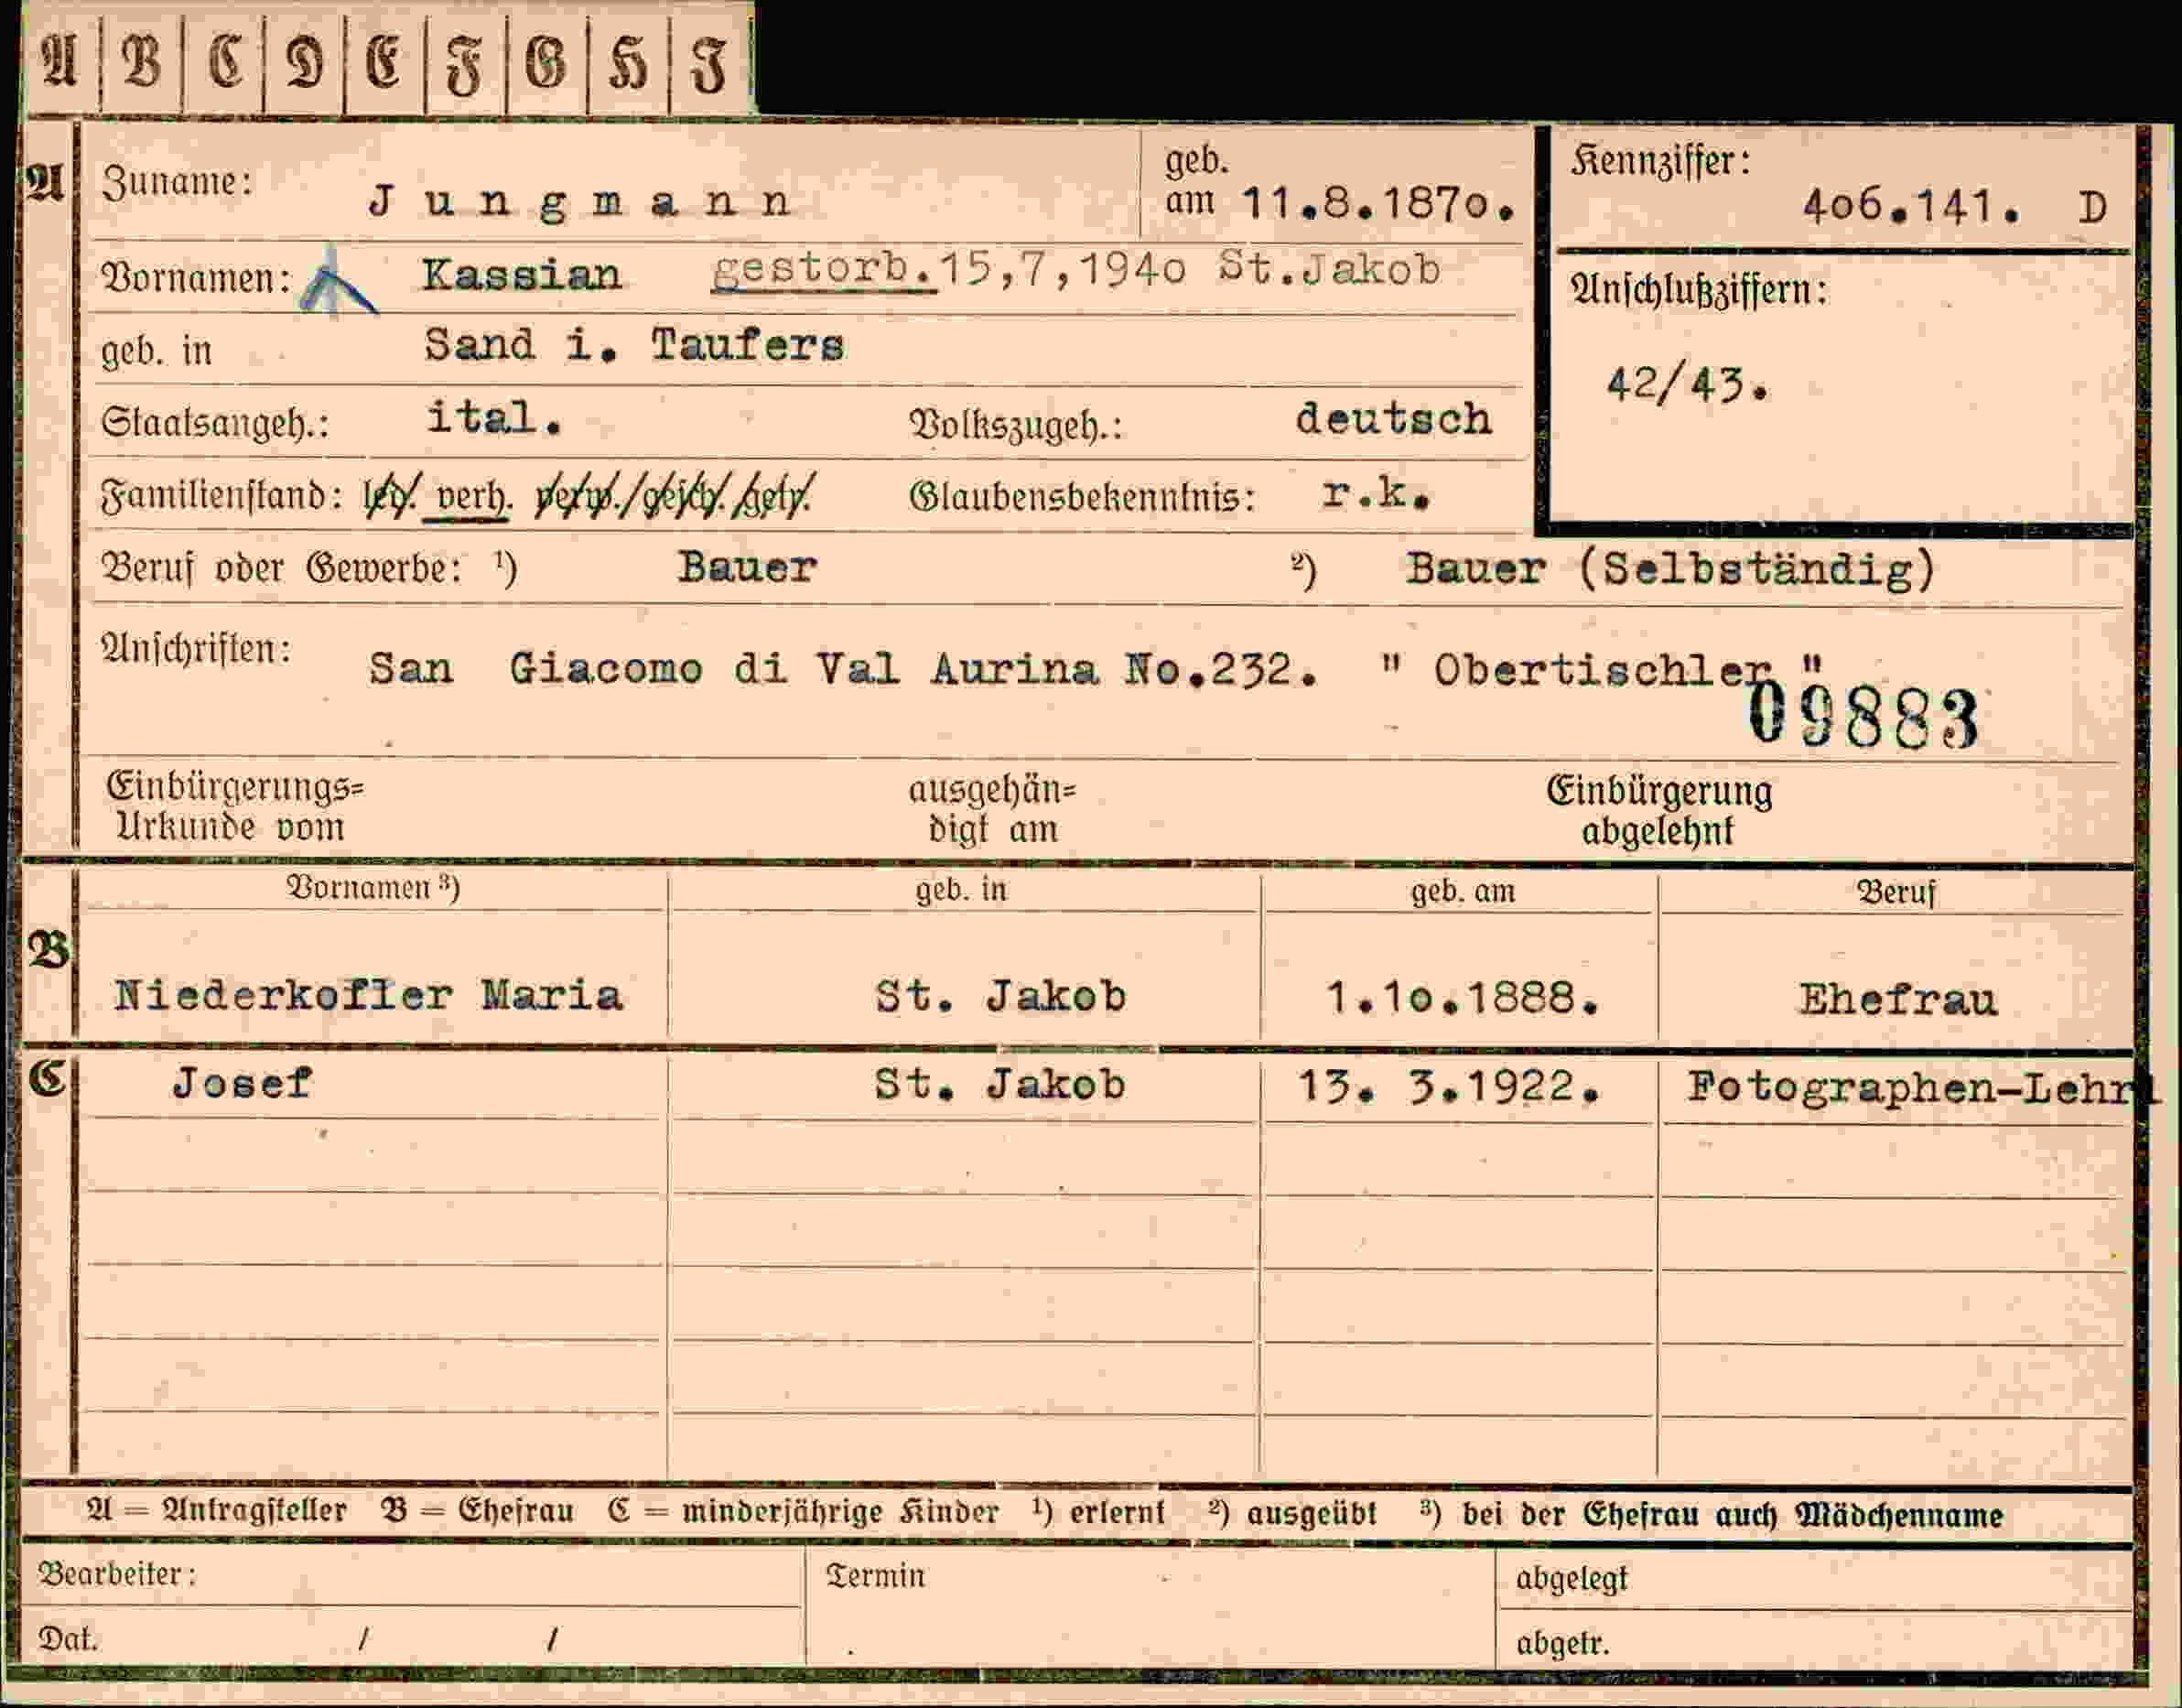 A B C D E F G H I
A Zuname: Jungmann geb. am 11.8.1870.
Kennziffer: 406.141. D
Vornamen: Kassian gestorb.15,7,1940 St.Jakob
Anschlußziffern:
42/43.
geb. in Sand i. Taufers
Staatsangeh.: ital. Volkszugeh.: deutsch
Familienstand: led. verh. verw./gesch./getr. Glaubensbekenntnis: r.k.
Beruf oder Gewerbe: ¹) Bauer ²) Bauer (Selbständig)
Anschriften: San Giacomo di Val Aurina No.232. " Obertischler "
09883
Einbürgerungs= Urkunde vom ausgehän= digt am Einbürgerung abgelehnt
Vornamen ³) geb. in geb. am Beruf
B Niederkofler Maria St. Jakob 1.10.1888. Ehefrau
C Josef St. Jakob 13. 3.1922. Fotographen-Lehrl
A = Antragsteller B = Ehefrau C = minderjährige Kinder ¹) erlernt ²) ausgeübt ³) bei der Ehefrau auch Mädchenname
Bearbeiter: Termin abgelegt
Dat. / / abgetr.